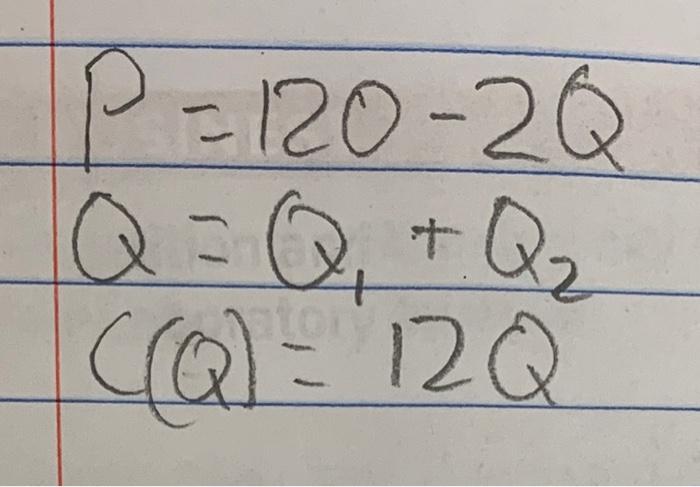 P = 120 - 2Q
Q = Q₁ + Q₂
C(Q) = 12Q